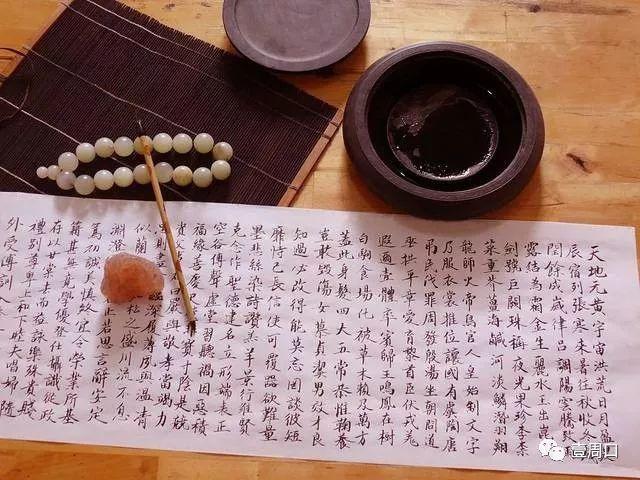 天地元黄宇宙洪荒日月盈
辰宿列張寒来暑往秋收冬
閏餘成歲律吕調陽雲騰致
露結為霜金生麗水玉出崑
劍號巨闕珠稱夜光果珍李柰
菜重芥薑海鹹河淡鱗潛羽翔
龍師火帝鳥官人皇始制文字
乃服衣裳推位讓國有虞陶唐
吊民伐罪周發殷湯坐朝問道
垂拱平章愛育黎首臣伏戎羌
遐邇壹體率賓歸王鳴鳳在樹
白駒食場化被草木賴及萬方
蓋此身髮四大五常恭惟鞠養
豈敢毀傷女慕貞潔男效才良
知過必改得能莫忘罔談彼短
靡恃己長信使可覆器欲難量
墨悲絲染詩讚羔羊景行維賢
克念作聖德建名立形端表正
空谷傳聲虛堂習聽禍因惡積
福緣善慶寶寸陰是競
資父事君曰嚴與敬孝當竭力
則盡深履薄夙興溫凊
似蘭松之盛川流不息
淵澄止若思言辭安定
篤初誠美慎終宜令榮業所基
籍甚無竟學優登仕攝職從政
存以甘棠去而益詠樂殊貴賤
禮別尊卑上和下睦夫唱婦隨
外受傅訓入
壹周口